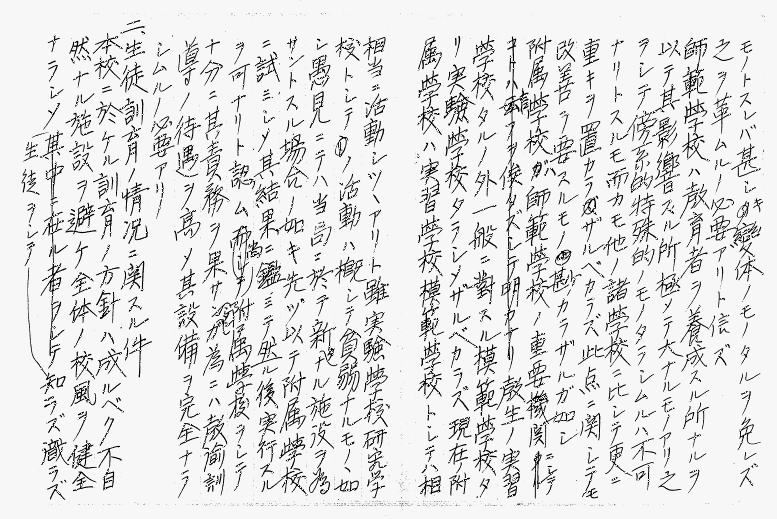 モノトスレバ甚シキ變体ノモノタルヲ免レズ
之ヲ革ムルノ必要アリト信ズ
師範學校ハ教育者ヲ養成スル所ナルヲ
以テ其影響スル所極メテ大ナルモノアリ之
ヲシテ傍系的特殊的ノモノタラシムルハ不可
ナリトスルモ而カモ他ノ諸學校ニ比シテ更ニ
重キヲ置カラザルベカラズ此点ニ関シテモ
改善ヲ要スルモノ尠カラザルガ如シ
附属學校ガ師範學校ノ重要機関ニシテ
ハ論ヲ俟タズシテ明カナリ教生ノ実習
學校タルノ外一般ニ對スル模範學校タ
リ実験學校タラシメザルベカラズ現在附
属學校ハ実習學校模範學校トシテハ相
相当ニ活動シツヽアリト雖実験學校研究學
校トシテノ活動ハ概シテ貧弱ナルモノヽ如
シ愚見ニテハ当局ニ於テ新タナル施設ヲ為
サントスル場合ノ如キ先ヅ以テ附属學校
ニ試ミシメ其結果ニ鑑ミテ然ル後実行スル
ヲ可ナリト認ム尚附属學校ヲシテ
十分ニ其責務ヲ果サシメンガ為ニハ教諭訓
導ノ待遇ヲ高メ其設備ヲ完全ナラ
シムルノ必要アリ
二、生徒訓育ノ情况ニ関スル件
本校ニ於ケル訓育ノ方針ハ成ルベク不自
然ナル施設ヲ避ケ全体ノ校風ヲ健全
ナラシメ其中ニ在ル者ヲシテ知ラズ識ラズ
生徒ヲシテ